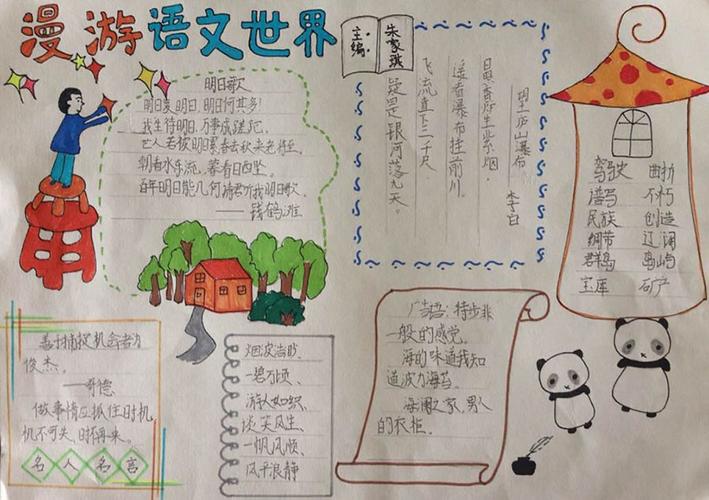 漫游语文世界
主编:
朱家琪
明日歌
明日复明日,明日何其多!
我生待明日,万事成蹉跎。
世人若被明日累,春去秋来老将至。
朝看水东流,暮看日西坠。
百年明日能几何,请君听我明日歌。
——钱鹤滩
望庐山瀑布
李白
日照香炉生紫烟,
遥看瀑布挂前川。
飞流直下三千尺,
疑是银河落九天。
驾驶 曲折
谱写 不朽
民族 创造
绸带 辽阔
群岛 岛屿
宝库 矿产
善于捕捉机会者为
俊杰。
——哥德
做事情应抓住时机
机不可失,时不再来。
名人名言
烟波浩渺、
一碧万顷、
游人如织、
谈笑风生、
一帆风顺、
风平浪静
广告语:特步非
一般的感觉。
海的味道我知
道波力海苔。
海澜之家,男人
的衣柜。